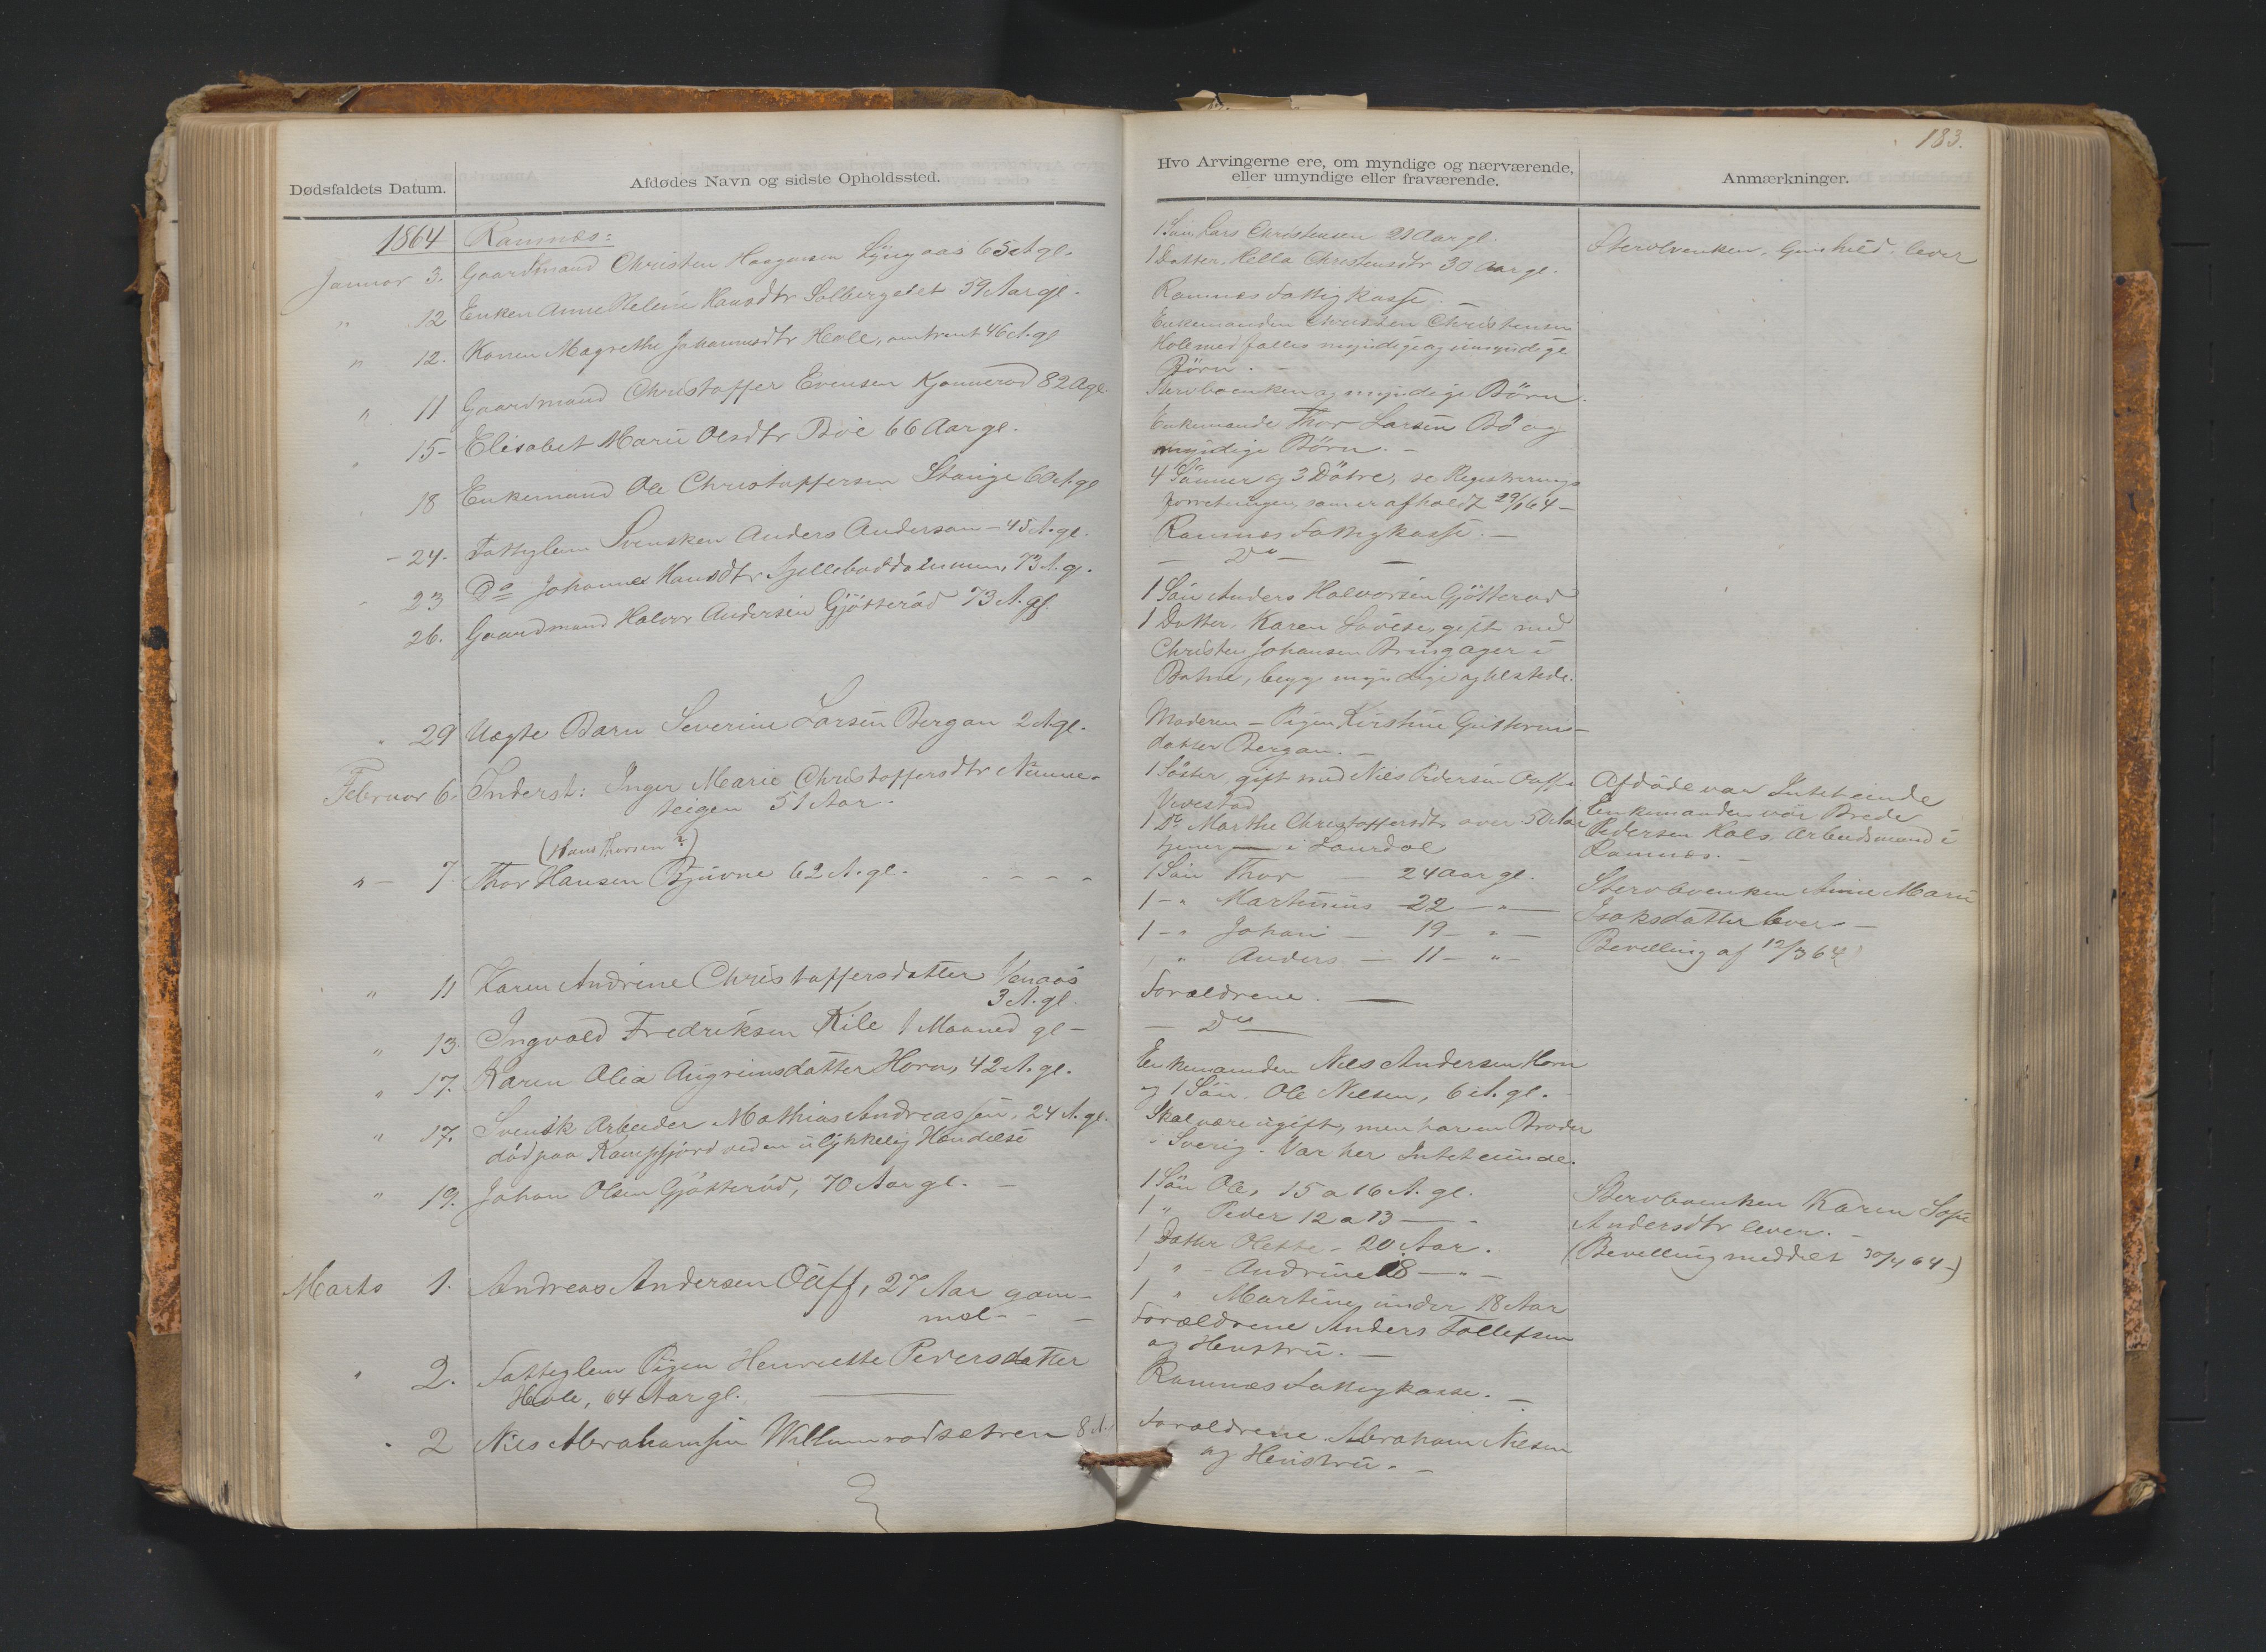 183.
Dødsfaldets Datum.
Afdødes Navn og sidste Opholdssted.
Hvo Arvingerne ere, om myndige og nærværende,
eller umyndige eller fraværende.
Anmærkninger.
1864 Ramnæs:
Januar 3. Gaardmand Christen Haagensen Lyngaas 65 A gl.
" 12 Enken Anne Helene Hansdtr Solbergedet 59 Aar gl.
" 12. Konen Magrethe Johannesdtr Hole, omtrent 46 A. gl
" 11 Gaardmand Christoffer Evensen Kjonnerød 82 A gl.
" 15- Elisabet Marie Olsdtr Böe 66 Aar gl.
" 18 Enkemand Ole Christoffersen Stange 60 A. gl
- 24. Fattiglem Svensken Anders Anderson - 45 A. gl.
" 23 Do Johanne Hansdtr 73 A. g.
26. Gaardmand Halvor Andersen Gjötterød 73 A. gl.
" 29 Uægte Barn Severine Larsen Bergan 2 A gl.
Februar 6. Inderst: Inger Marie Christoffersdtr Nunne-
teigen 51 Aar.
(Hans Thorsen?)
" - 7. Thor Hansen Bjuvne 62 A. gl. - - - -
" 11 Karen Andrine Christoffersdatter Venaas
3 A. gl.
" 13. Ingvald Fredriksen Kile 1 Maaned gl -
" 17. Karen Olea Angrimsdatter Horn, 42 A. gl.
" 17. Svensk Arbeider Mathias Andreassen, 24 A. gl.
död paa Kampfjord ved en ulykkelig Hændelse
" 19. Johan Olsen Gjötteröd, 70 Aar gl. -
Marts 1. Andreas Andersen Oüff, 27 Aar gam-
mel - -
" 2. Fattiglem Pigen Henriette Pedersdatter
Hole, 64 Aar gl.
" 2 Nils Abrahamsen Willumrødsetren 8 A.
1 Sön Lars Christensen 21 Aar gl.
1 Datter, Hella Christensdtr 30 Aar gl.
Ramnæs Fattigkasse -
Enkemanden Christen Christensen
Hole med fælles myndige og umyndige
Börn. -
Stervboenken og myndige Börn.
Enkemand Thor Larsen Bö og
myndige Börn. -
4 Sönner og 3 Dötre, se Registrerings
forretningen, som er afholdt 29/1 64 -
Ramnæs Fattigkasse. -
- Do - -
1 Sön Anders Halvorsen Gjötterød
1 Datter, Karen Lovise, gift med
Christen Johansen Bringager i
Botne, begge myndige og tilstede.
Moderen - Pigen Kirstine Guttorms-
datter Bergan. -
1 Söster, gift med Niels Pedersen
Vivestad
1 Do Marthe Christoffersdtr over 50 Aar
tjener i Laurdal
1 Sön Thor - 24 Aar gl.
1 - " Martinius 22 - " -
1 - " Johan - 19 - " -
" Anders - 11 - " -
Forældrene. -
- Do -
Enkemanden Niels Andersen Horn
og 1 Sön. Ole Nielsen, 6 A. gl. -
Skal være ugift, men har en Broder
i Sverig. Var her Intet eiende.
1 Sön Ole, 15 a 16 A. gl.
1 " Peder 12 a 13 - "
1 Datter Olette - 20 Aar.
1 " - Andrine 18 - " -
1 " Martine, under 18 Aar
Forældrene Anders Tollefsen
og Hustru. -
Ramnæs Fattigkasse. -
Forældrene Abraham Nielsen
og Hustru. -
Stervboenken, Gunhild, lever
Afdöde var Intet eiende
Enkemanden var Brede
Pedersen Kals, Arbeidsmand i
Ramnæs. -
Stervboenken Anne Marie
Isaksdatter lever -
Bevilling af 12/3 64
Stervboenken Karen Sofie
Andersdtr lever. -
(Bevilling meddelt 30/4 64 -)